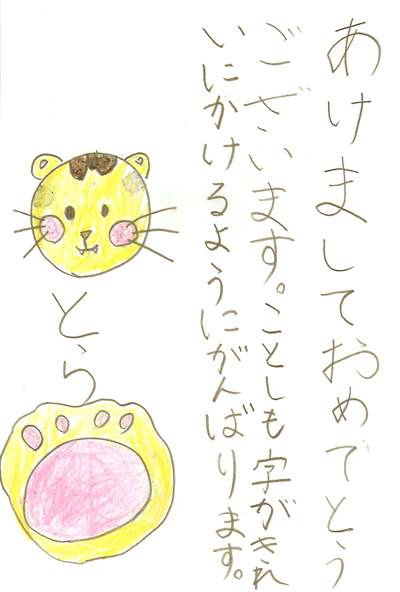 あけましておめでとう
ございます。ことしも字がきれ
いにかけるようにがんばります。
とら